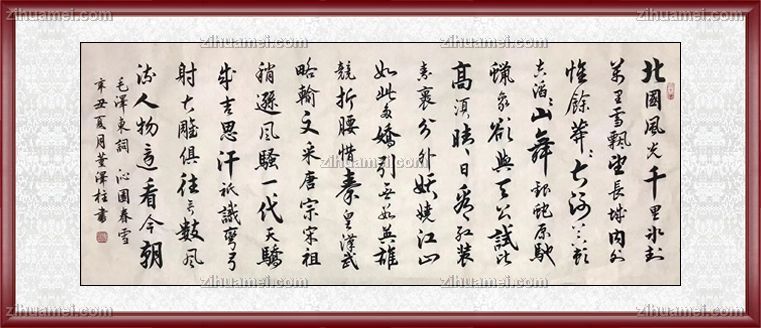 北國風光千里冰封
萬里雪飄望長城内外
惟餘莽〻大河上下頓
失滔〻山舞銀蛇原馳
蠟象欲與天公試比
高須晴日看紅裝
素裹分外妖嬈江山
如此多嬌引無數英雄
競折腰惜秦皇漢武
略輸文采唐宗宋祖
稍遜風騷一代天驕
成吉思汗祇識彎弓
射大雕俱往矣數風
流人物還看今朝
毛澤東詞 沁園春雪
辛丑夏月澤柱書
zihuamei.com
zihuamei.com
zihuamei.com
zihuamei.com
zihuamei.com
zihuamei.com
zihuamei.com
zihuamei.com
zihuamei.com